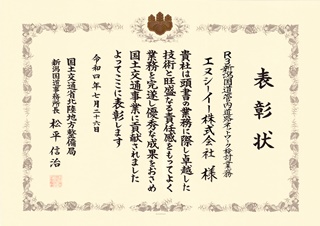 表彰状
R3新潟国道管内道路ネットワーク検討業務
エヌシーイー株式会社 様
貴社は頭書の業務に際し卓越した
技術と旺盛なる責任感をもってよく
業務を完遂し優秀な成果をおさめ
国土交通事業に貢献されました
よってここに表彰します
令和四年七月二十六日
国土交通省北陸地方整備局
新潟国道事務所長 松平 信治